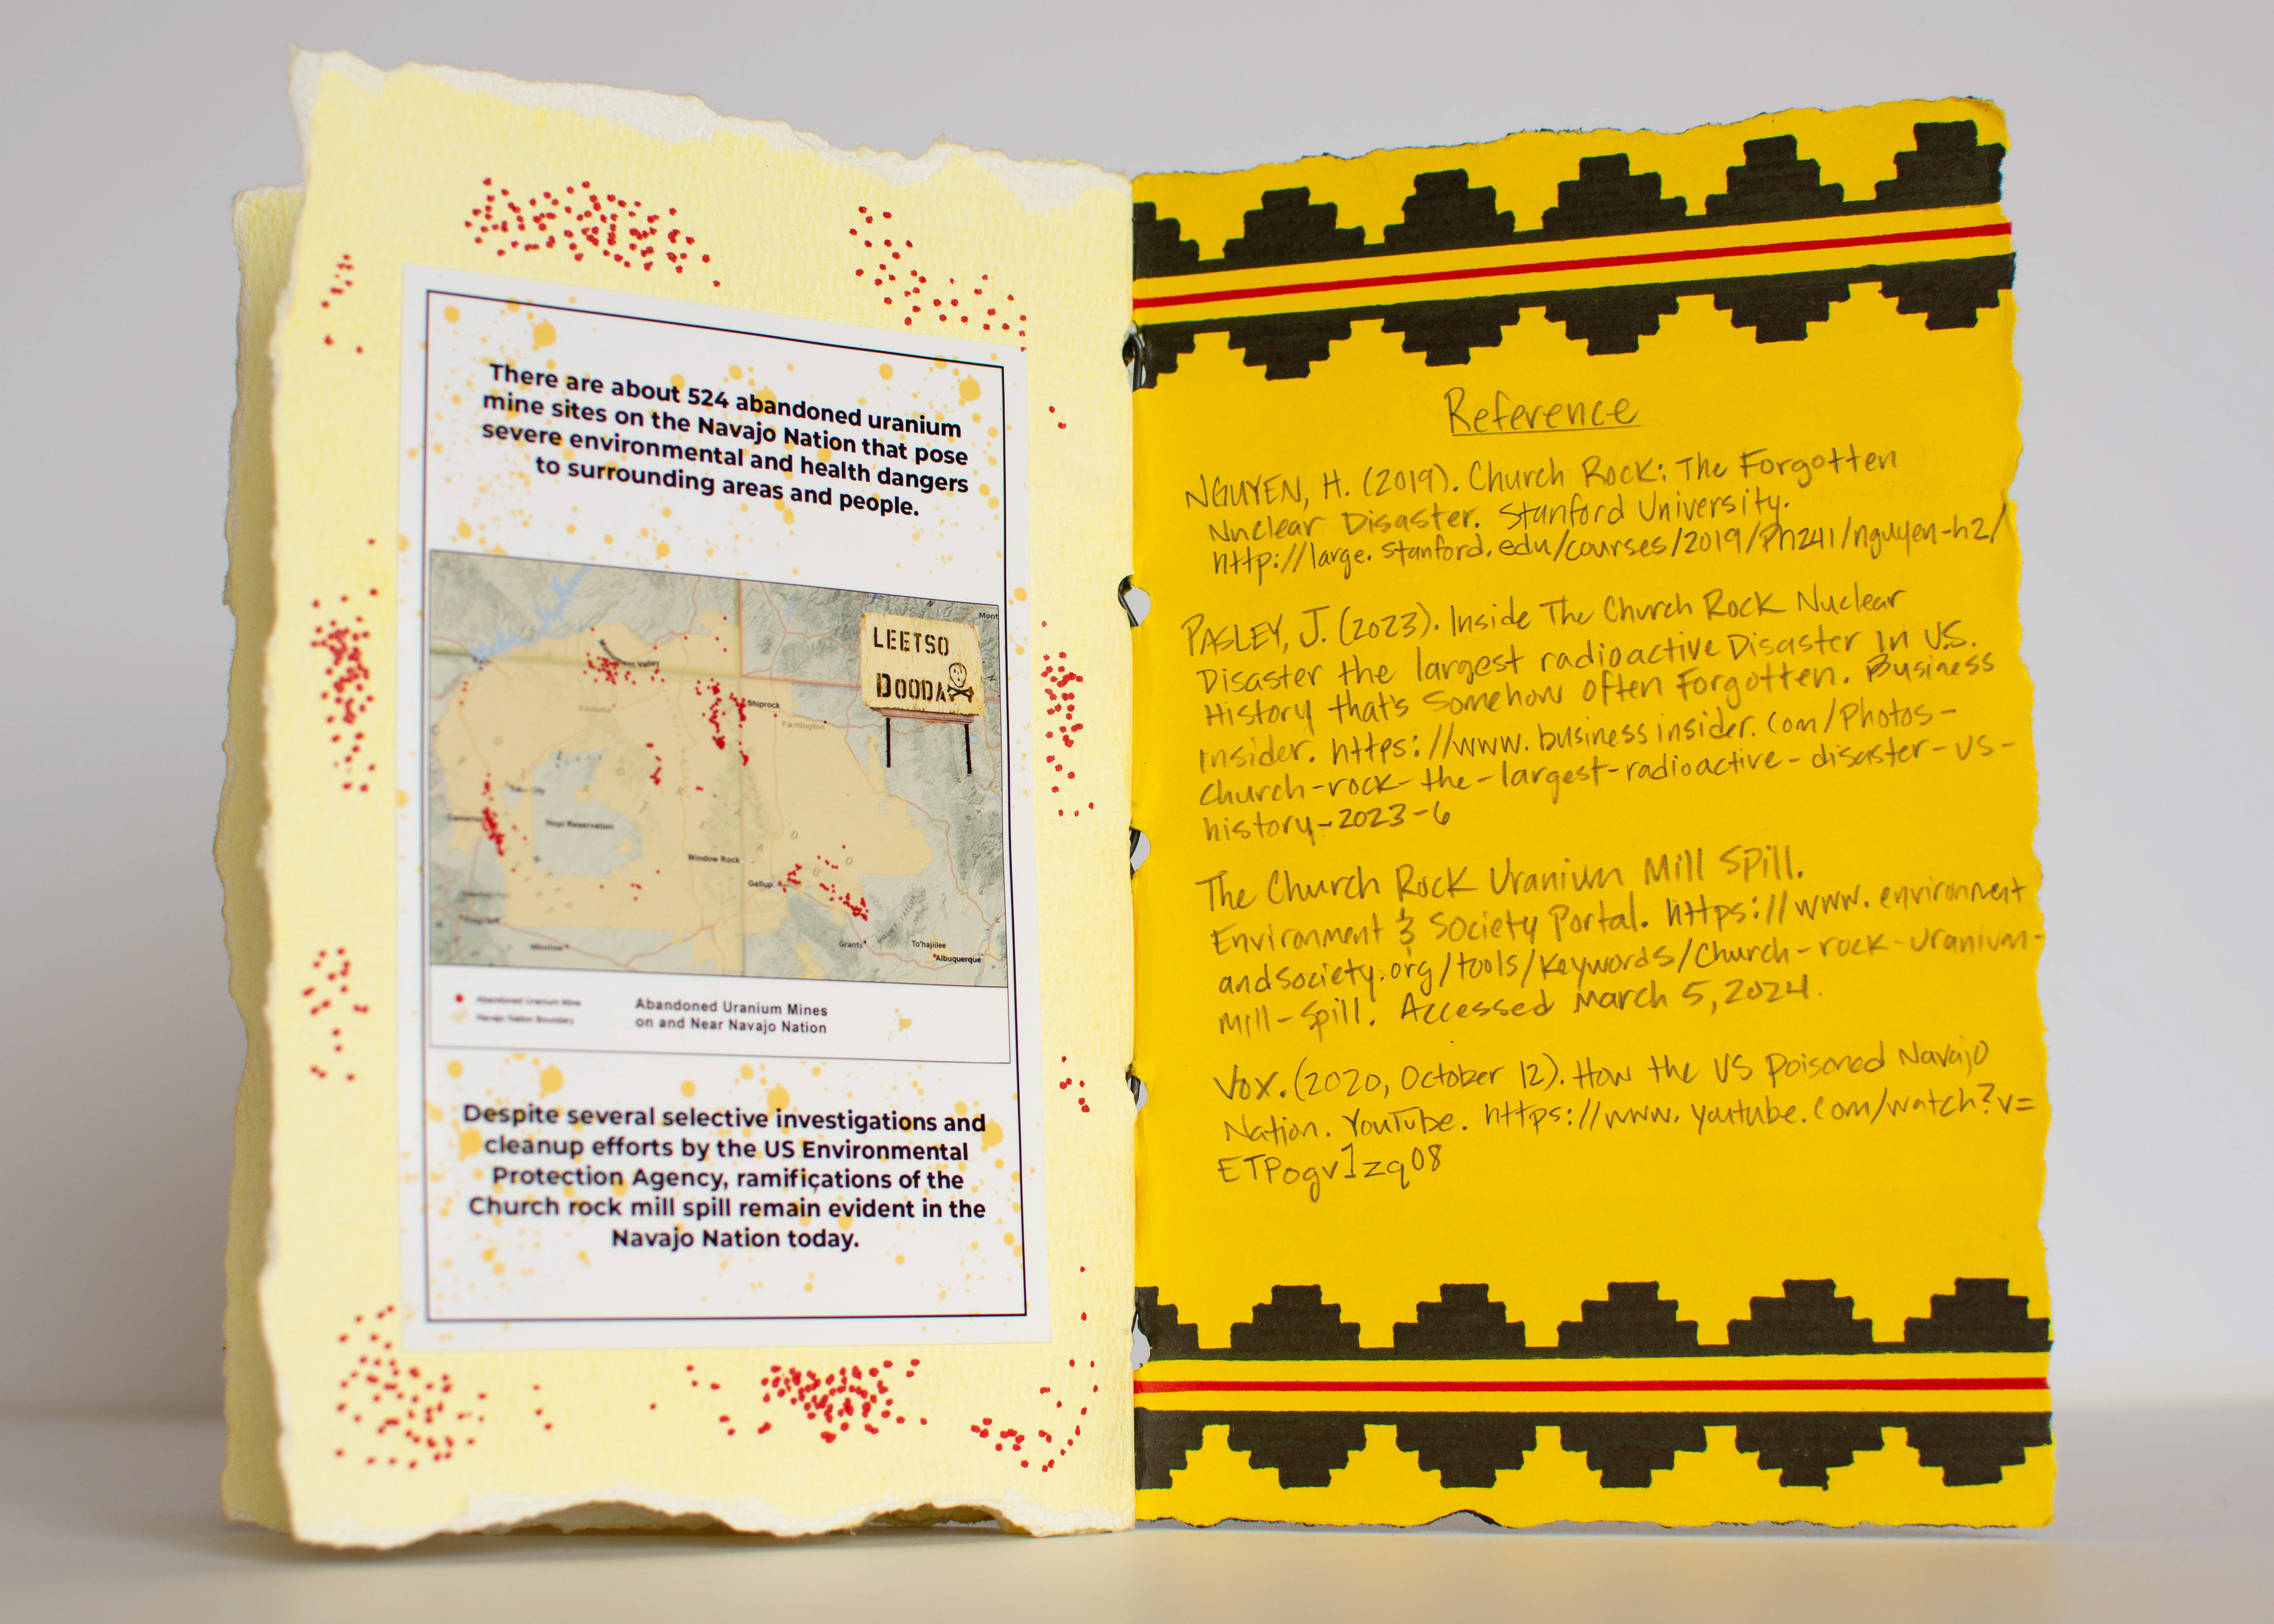 There are about 524 abandoned uranium
mine sites on the Navajo Nation that pose
severe environmental and health dangers
to surrounding areas and people.
Mont
LEETSO
DOODA
Valley
Shiprock
Farmington
Hopi Reservation
Window Rock
Gallup
Grants
To'hajiilee
Albuquerque
Winslow
Abandoned Uranium Mine
Navajo Nation Boundary
Abandoned Uranium Mines
on and Near Navajo Nation
Despite several selective investigations and
cleanup efforts by the US Environmental
Protection Agency, ramifications of the
Church rock mill spill remain evident in the
Navajo Nation today.
Reference
NGUYEN, H. (2019). Church Rock: The Forgotten
Nuclear Disaster. Stanford University.
http://large.stanford.edu/courses/2019/Ph241/nguyen-h2/
PASLEY, J. (2023). Inside The Church Rock Nuclear
Disaster the largest radioactive Disaster in U.S.
History that's Somehow Often Forgotten. Business
Insider. https://www.businessinsider.com/Photos-
Church-rock-the-largest-radioactive-disaster-us-
history-2023-6
The Church Rock Uranium Mill Spill.
Environment & Society Portal. https://www.environment
andsociety.org/tools/keywords/Church-rock-uranium-
mill-spill. Accessed March 5, 2024.
Vox. (2020, October 12). How the US Poisoned Navajo
Nation. YouTube. https://www.youtube.com/watch?v=
ETPogv1zq08